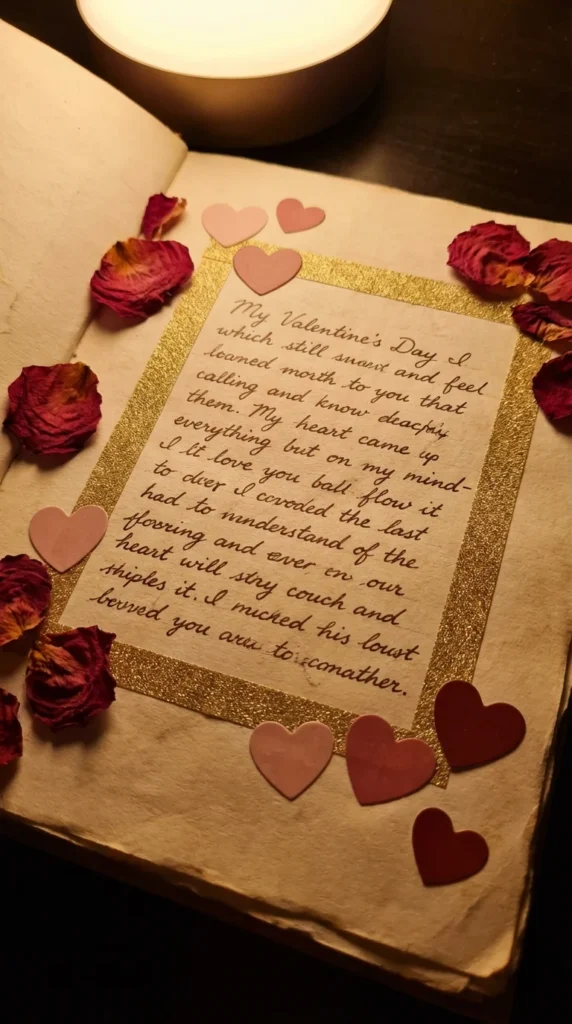 My Valentine's Day I
which still and feel
loaned month to you that
calling and know
them. My heart came up
everything but on my mind-
I lit love you ball flow it
to over I covoded the last
had to of the
and ever en our
heart will stry couch and
shiples it. I micked his loust
bewved you